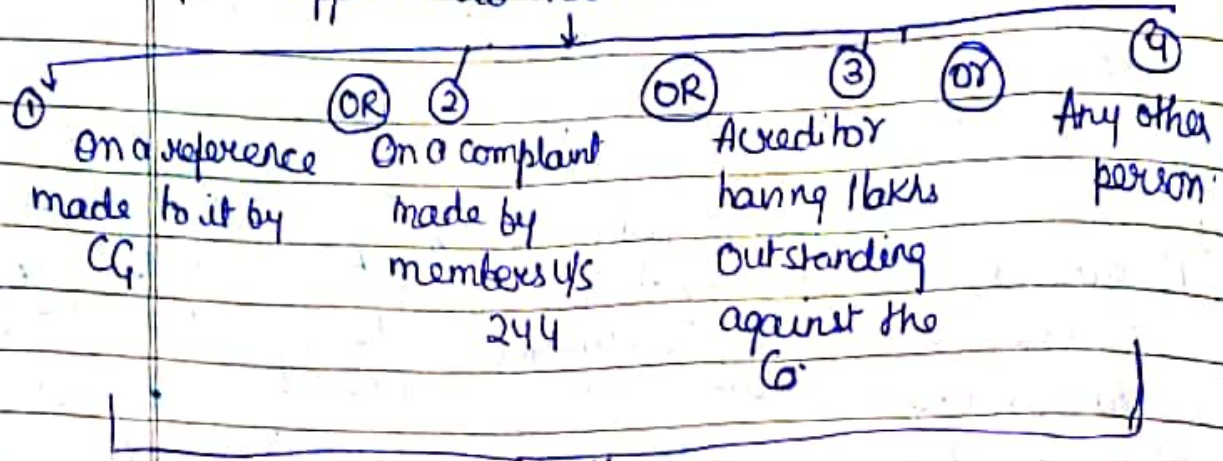 ① 
On a reference
made to it by
CG.
OR
②
On a complaint
made by
members u/s
244
OR
③
A creditor
having 1 lakhs
outstanding
against the
Co.
or
④
Any other
person.